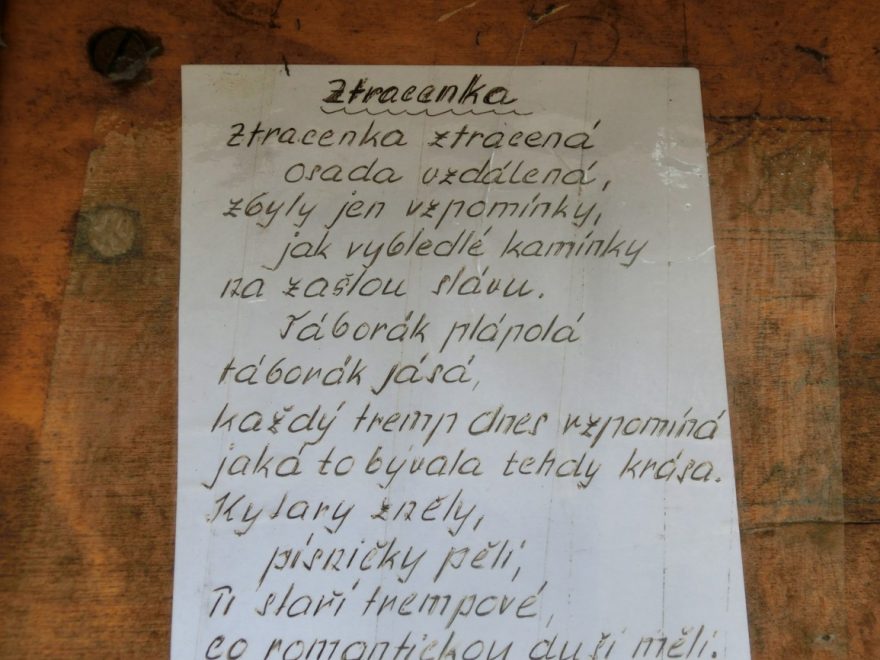 Ztracenka
Ztracenka ztracená
osada vzdálená,
zbyly jen vzpomínky,
jak vybledlé kamínky
na zašlou slávu.
Táborák plápolá
táborák jásá,
každý tremp dnes vzpomíná
jaká to bývala tehdy krása.
Kytary zněly,
písničky pěli,
Ti staří trempové,
co romantickou duši měli.